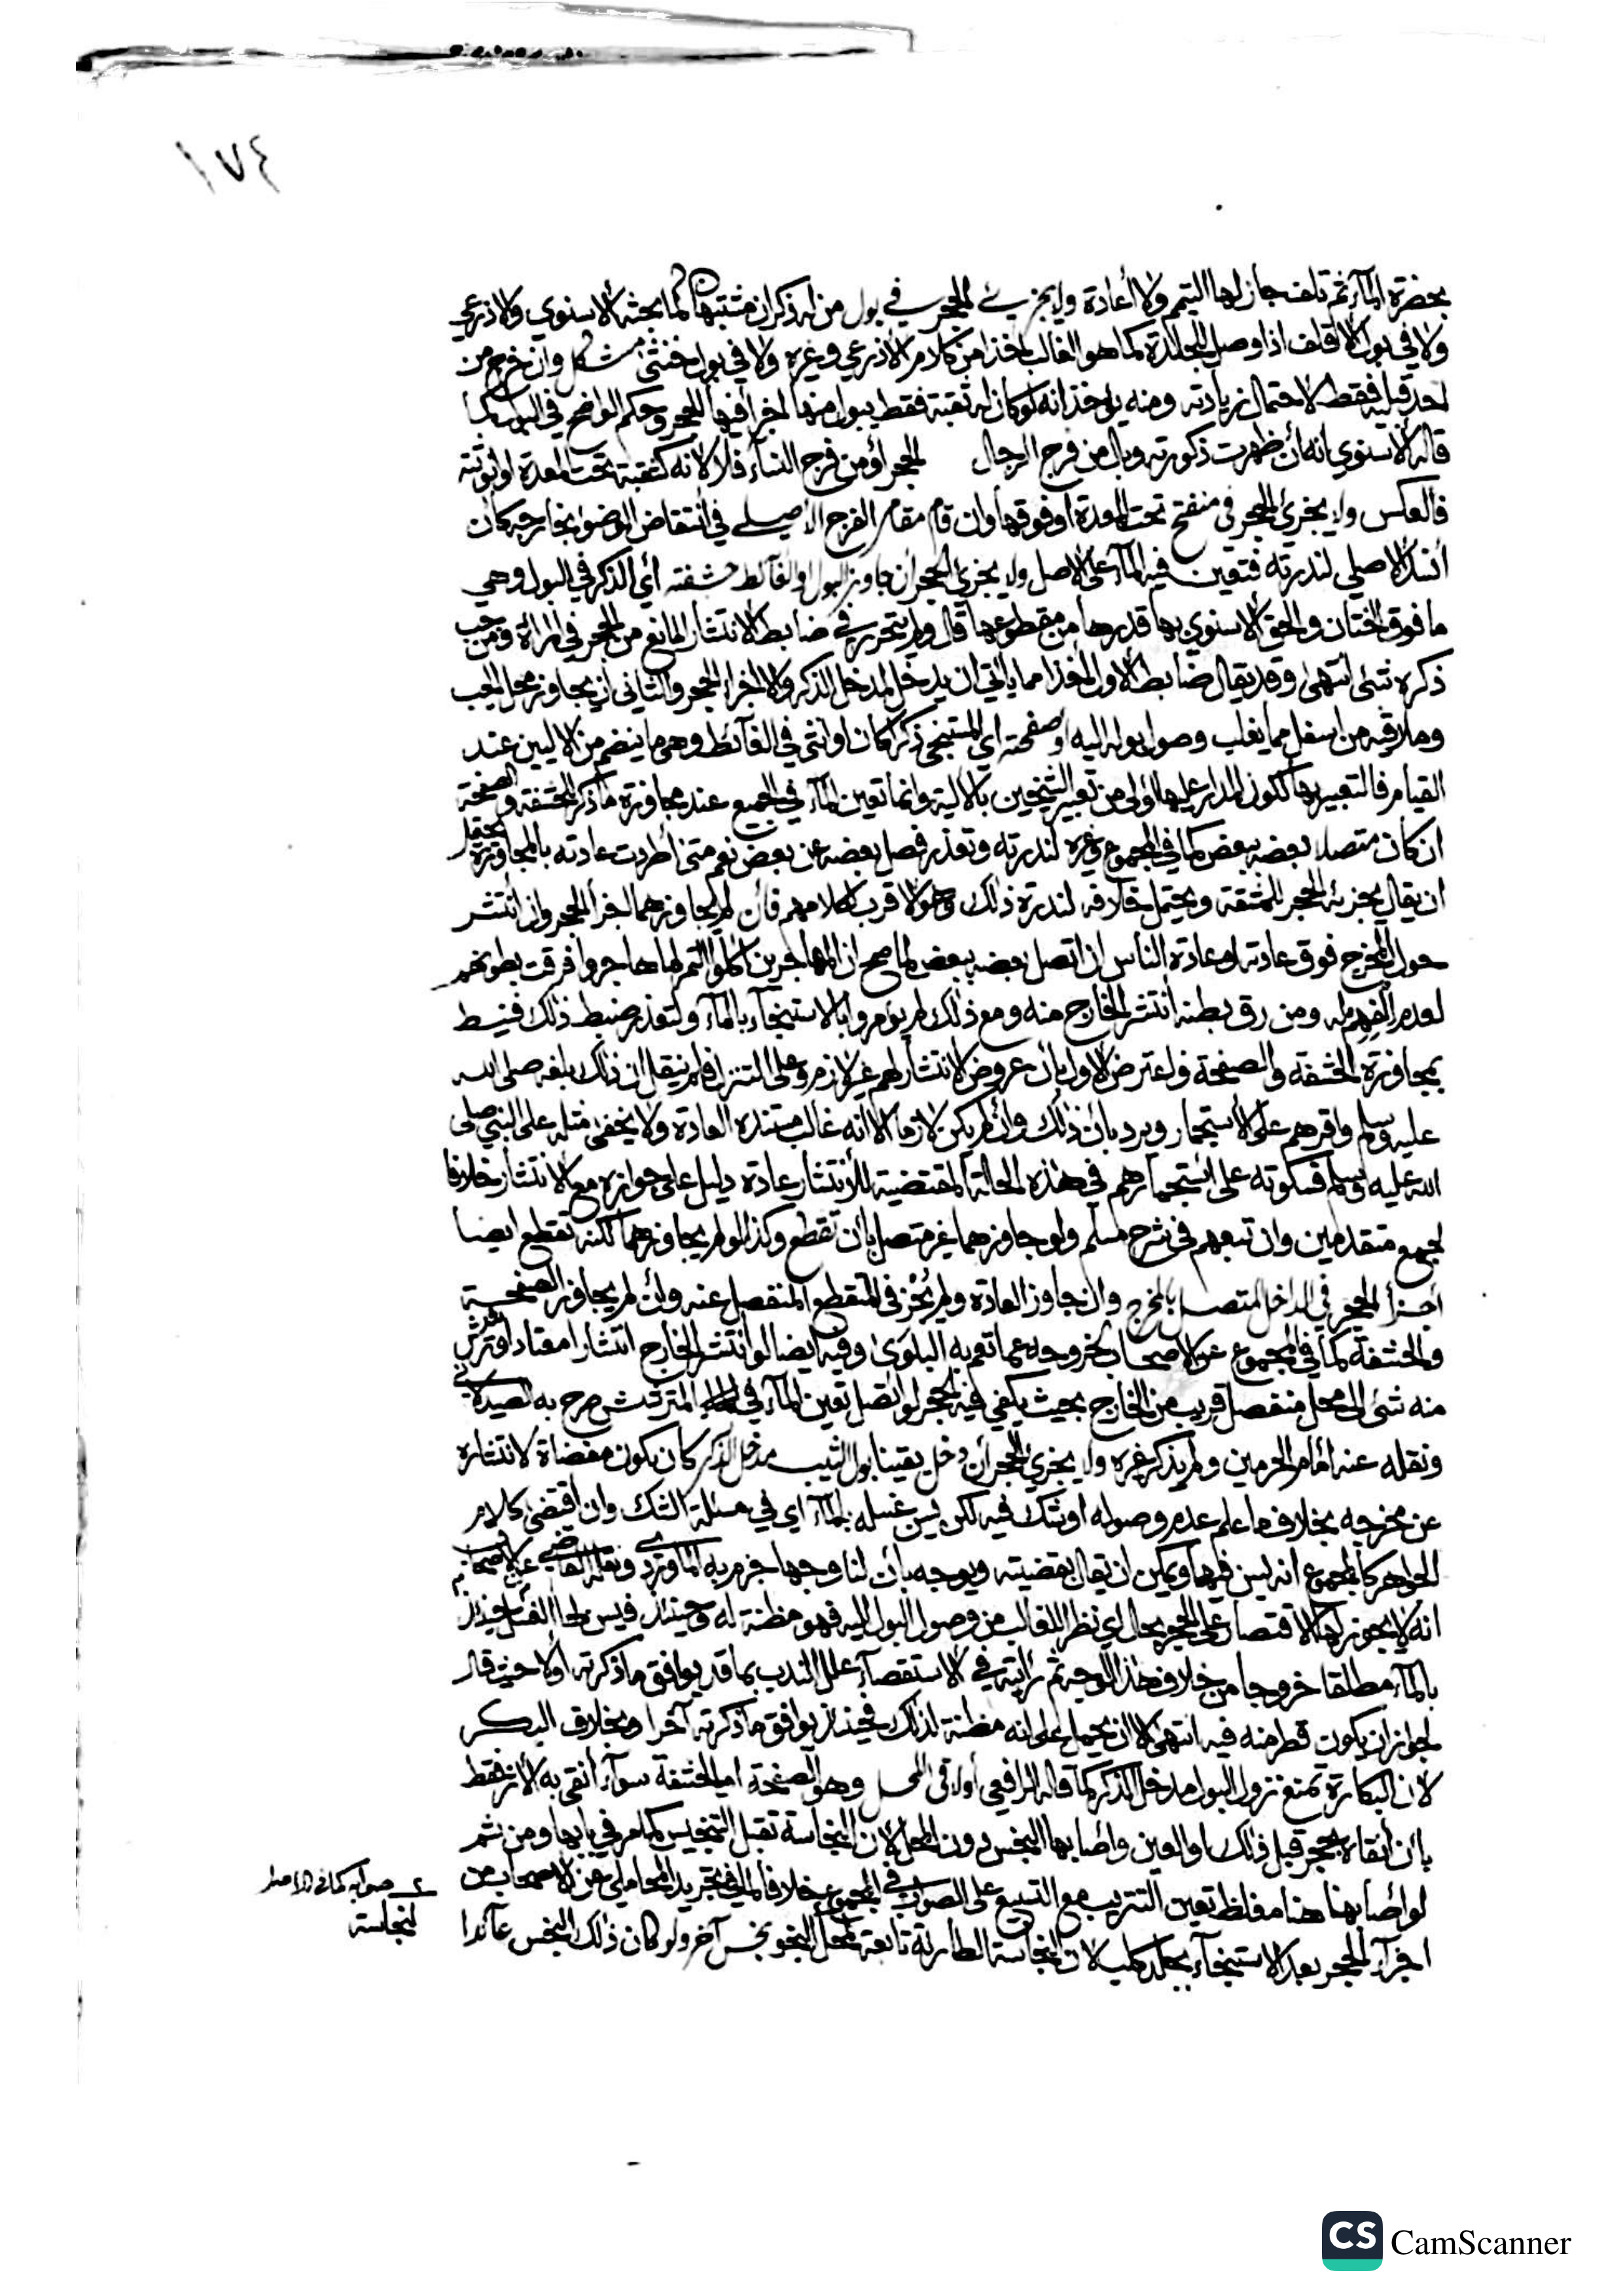 ١٧٤
بحضرة الماء ثم تلف جاز لها التيمم ولا اعادة ولا يجزئ الحجر في بول من له ذكران مشتبهان كما بحثه الاسنوي والاذرعي
ولا في بول الاقلف اذا وصل للجلدة كما هو الغالب اخذا من كلام الاذرعي وغيره ولا في بول خنثى مشكل وان خرج من
احد قبليه فقط لاحتمال زيادته ومنه يؤخذ انه لو كان له ثقبة فقط يبول منها اجزا فيها الحجر وحكم الواضح في البول كما
قاله الاسنوي انه ان ظهرت ذكورته وبال من فرج الرجال الحجر او من فرج النساء فلا لانه كثقبة تحت المعدة او انوثته
فالعكس ولا يجزئ الحجر في منفتح تحت المعدة او فوقها وان قام مقام الفرج الاصلي في انتقاض الوضوء بخارجه كان
انسد الاصلي لندرته فتعين فيه الماء على الاصل ولا يجزئ الحجر ان جاوز البول او الغائط حشفته اي الذكر في البول وهي
ما فوق الختان والحق الاسنوي بها قدرها من مقطوعها قال ولم يتحرر في ضابط الانتشار المانع من الحجر في المراة ومن جب
ذكره شئ انتهى وقد يقال ضابط الاول اخذا مما ياتي ان يدخل مدخل الذكر والا اجزا الحجر والثاني ان يجاوز محل الجب
وملاقيه من اسفل مما يغلب وصول بوله اليه او صفحته اي المستنجي ذكرا كان او انثى في الغائط وهي ما ينضم من الاليين عند
القيام فالتعبير بها لكون المدار عليها اولى من تعبير الشيخين بالالية وانما تعين الماء في الجميع عند مجاوزة ما ذكر للحشفة والصفحة
ان كان متصلا بعضه ببعض كما في المجموع وغيره لندرته وتعذر فصل بعضه عن بعض نعم متى اطردت عادته بالمجاوزة يحتمل
ان يقال يجزئه الحجر للمشقة ويحتمل خلافه لندرة ذلك وهو الاقرب لكلامهم فان لم يجاوزهما اجزا الحجر وان انتشر
حول المخرج فوق عادته او عادة الناس ان اتصل بعضه ببعض لما صح ان المهاجرين اكلوا التمر لما هاجروا فرقت بطونهم
لعدم الفهم له ومن رق بطنه انتشر الخارج منه ومع ذلك لم يؤمروا بالاستنجاء بالماء ولتعذر ضبط ذلك فنيط
بمجاوزة الحشفة والصفحة واعترض الاول بان عروض الانتشار لهم غير لازم وعلى التنزل فلم ينقل ان ذلك بلغه صلى الله
عليه وسلم واقرهم على الاستجمار ويرد بان ذلك وان لم يكن لازما الا انه غالب مستنده العادة ولا يخفى مثله على النبي صلى
الله عليه وسلم فسكوته على استجمارهم في هذه الحالة المقتضية للانتشار عادة دليل على جوازه مع الانتشار خلافا
لجمع متقدمين وان تبعهم في شرح مسلم ولو جاوزهما غير متصل بان تقطع وكذا لو لم يجاوزهما لكنه تقطع ايضا
اجزا الحجر في الداخل المتصل بالمخرج وان جاوز العادة ولم يجز في المتقطع المنفصل عنه وان لم يجاوز الصفحة
والحشفة كما في المجموع عن الاصحاب لخروجه عما تعم به البلوى وفيه ايضا لو انتشر الخارج انتشارا معتادا وترشرش
منه شئ الى محل منفصل قريب من الخارج بحيث يكفي فيه الحجر لو اتصل تعين الماء في المترشرش صرح به الصيدلاني
ونقله عنه امام الحرمين ولم يذكر غيره ولا يجزئ الحجر ان دخل يقينا بول الثيب مدخل الذكر كان يكون مفضاة لانتشاره
عن مخرجه بخلاف ما علم عدم وصوله او شك فيه لكن يسن غسله بالماء اي في مسئلة الشك وان اقتضى كلام
الجواهر كالمجموع انه ليس فيها ويمكن ان يقال بقضيته ويوجه بان لنا وجها جزم به الماوردي ونقله القاضي عن الاصحاب
انه لا يجوز لها الاقتصار على الحجر بحال اي نظرا للغالب من وصول البول اليه فهو مظنة له وحينئذ فيسن لها الغسل حينئذ
بالماء مطلقا خروجا من خلاف هذا الوجه ثم رايته في الاستقصاء علل الندب بما قد يوافق ما ذكرته اولا حيث قال
لجواز ان يكون قطر منه فيه انتهى الا ان يحمل على انه مظنة لذلك فحينئذ يوافق ما ذكرته آخرا وبخلاف البكر
لان البكارة تمنع نزول البول مدخل الذكر كما قاله الرافعي او لاقى المحل وهو الصفحة او الحشفة سواء انقى به الاثر فقط
بان انقاه بحجر قبل ذلك او العين واصابها النجس دون المحل لان النجاسة تقبل التنجيس كما مر في بابها ومن ثم
لو اصابها هنا مغلظ تعين التتريب مع التسبيع على الصواب في المجموع خلافا لما في تجريد المحاملي عن الاصحاب من
اجزاء الحجر بعد الاستنجاء بجلد كلب لان النجاسة الطارئة تابعة لمحل النجو نجس آخر ولو كان ذلك النجس عائدا
صوابه كما في الاصل
لنجاسة
CS CamScanner